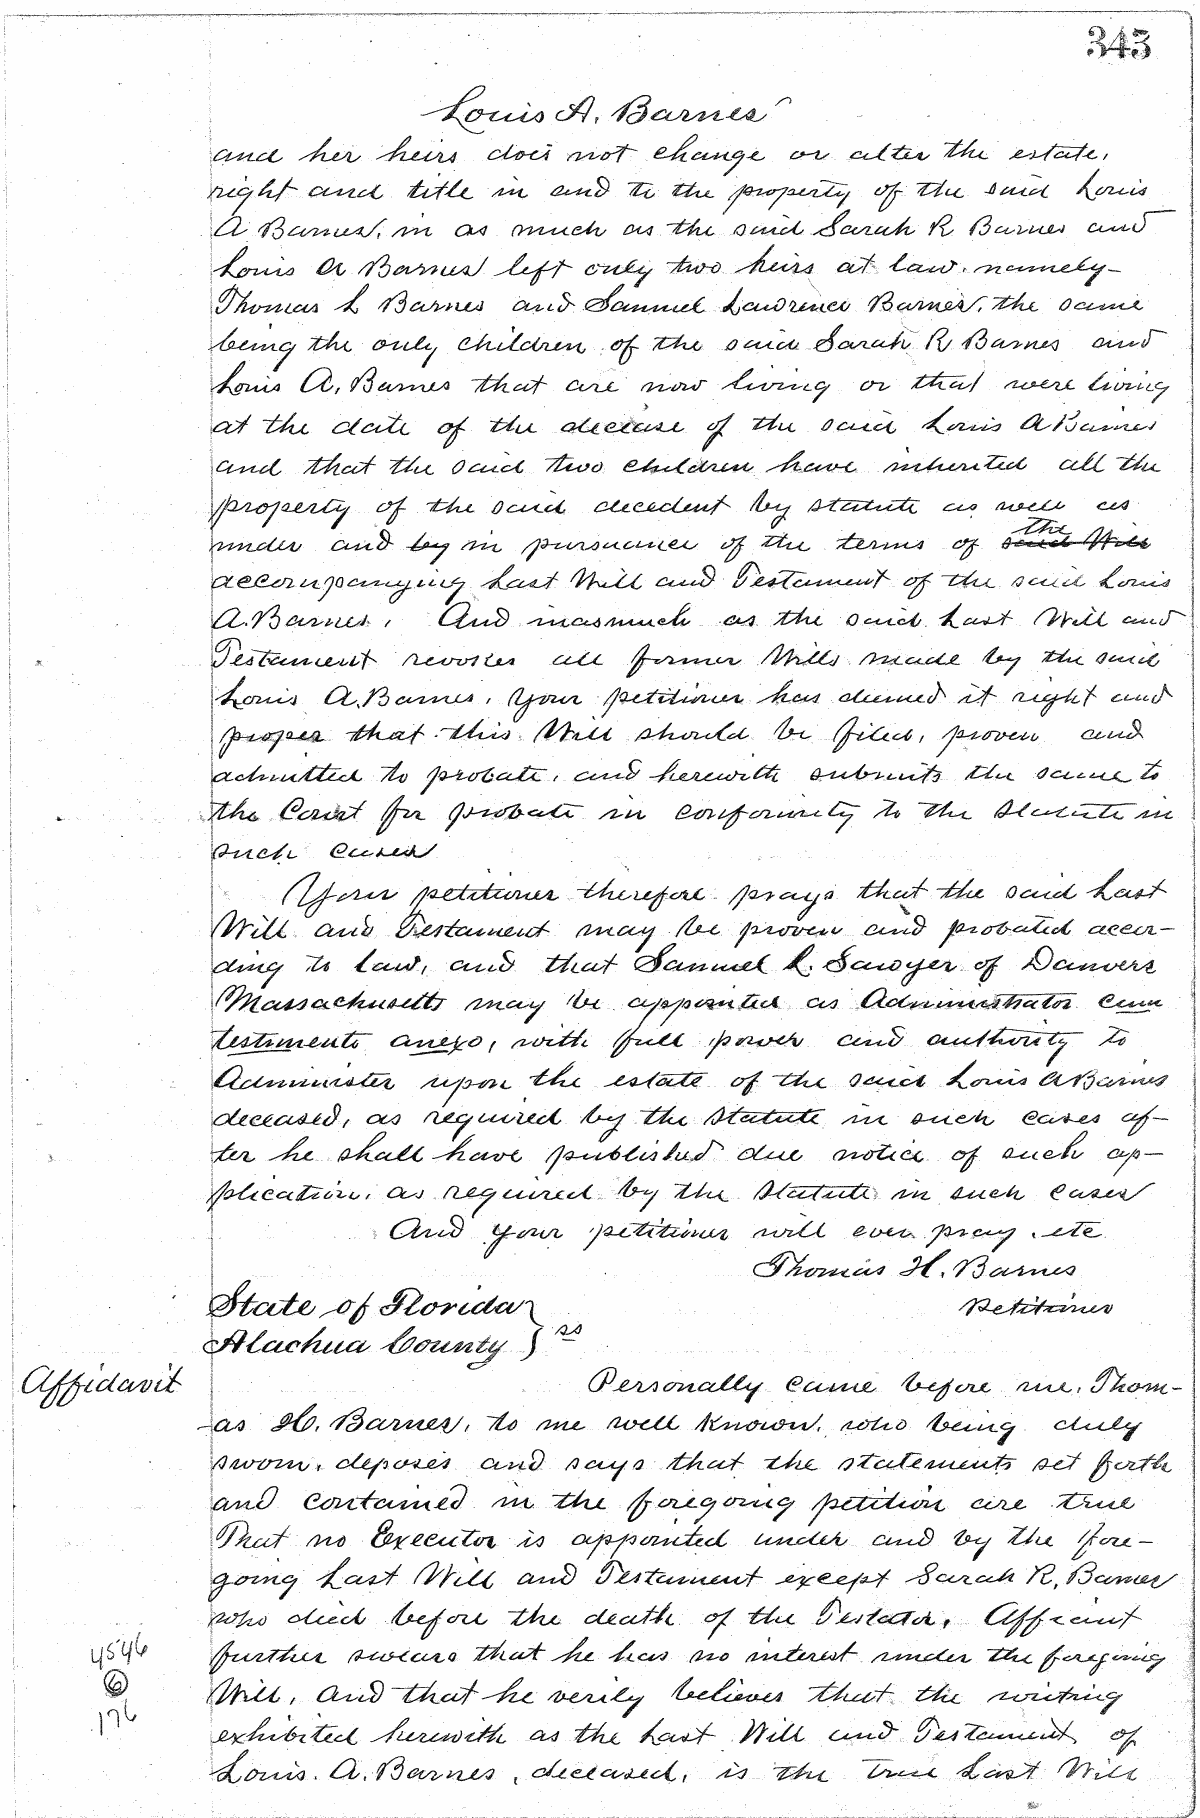 343
Louis A. Barnes
and her heirs does not change or alter the estate,
right and title in and to the property of the said Louis
A Barnes, in as much as the said Sarah R Barnes and
Louis A Barnes left only two heirs at law, namely-
Thomas L Barnes and Samuel Lawrence Barnes, the same
being the only children of the said Sarah R Barnes and
Louis A, Barnes that are now living or that were living
at the date of the decease of the said Louis A Barnes
and that the said two children have inherited all the
property of the said decedent by statute as well as
under and by in pursuance of the terms of said Will the
accompanying Last Will and Testament of the said Louis
A. Barnes. And inasmuch as the said Last Will and
Testament revokes all former Wills made by the said
Louis A. Barnes, Your petitioner has deemed it right and
proper that this Will should be filed, proven and
admitted to probate, and herewith submits the same to
the Court for probate in conformity to the Statute in
such cases
Your petitioner therefore prays that the said Last
Will and Testament may be proven and probated accor-
ding to law, and that Samuel L. Sawyer of Danvers
Massachusetts may be appointed as Administrator cum
testimento anexo, with full power and authority to
Administer upon the estate of the said Louis A Barnes
deceased, as required by the Statute in such cases af-
ter he shall have published due notice of such ap-
plication, as required by the Statute in such cases
And your petitioner will ever pray. etc
Thomas H. Barnes
Petitioner
State of Florida
Alachua County } ss
Affidavit
Personally came before me, Thom-
-as H. Barnes, to me well known, who being duly
sworn, deposes and says that the statements set forth
and contained in the foregoing petition are true
That no Executor is appointed under and by the fore-
going Last Will and Testament except Sarah R, Barnes
who died before the death of the Testator, Affiant
further swears that he has no interest under the foregoing
Will, and that he verily believes that the writing
exhibited herewith as the Last Will and Testament of
Louis. A. Barnes, deceased, is the true Last Will
4546
6
176